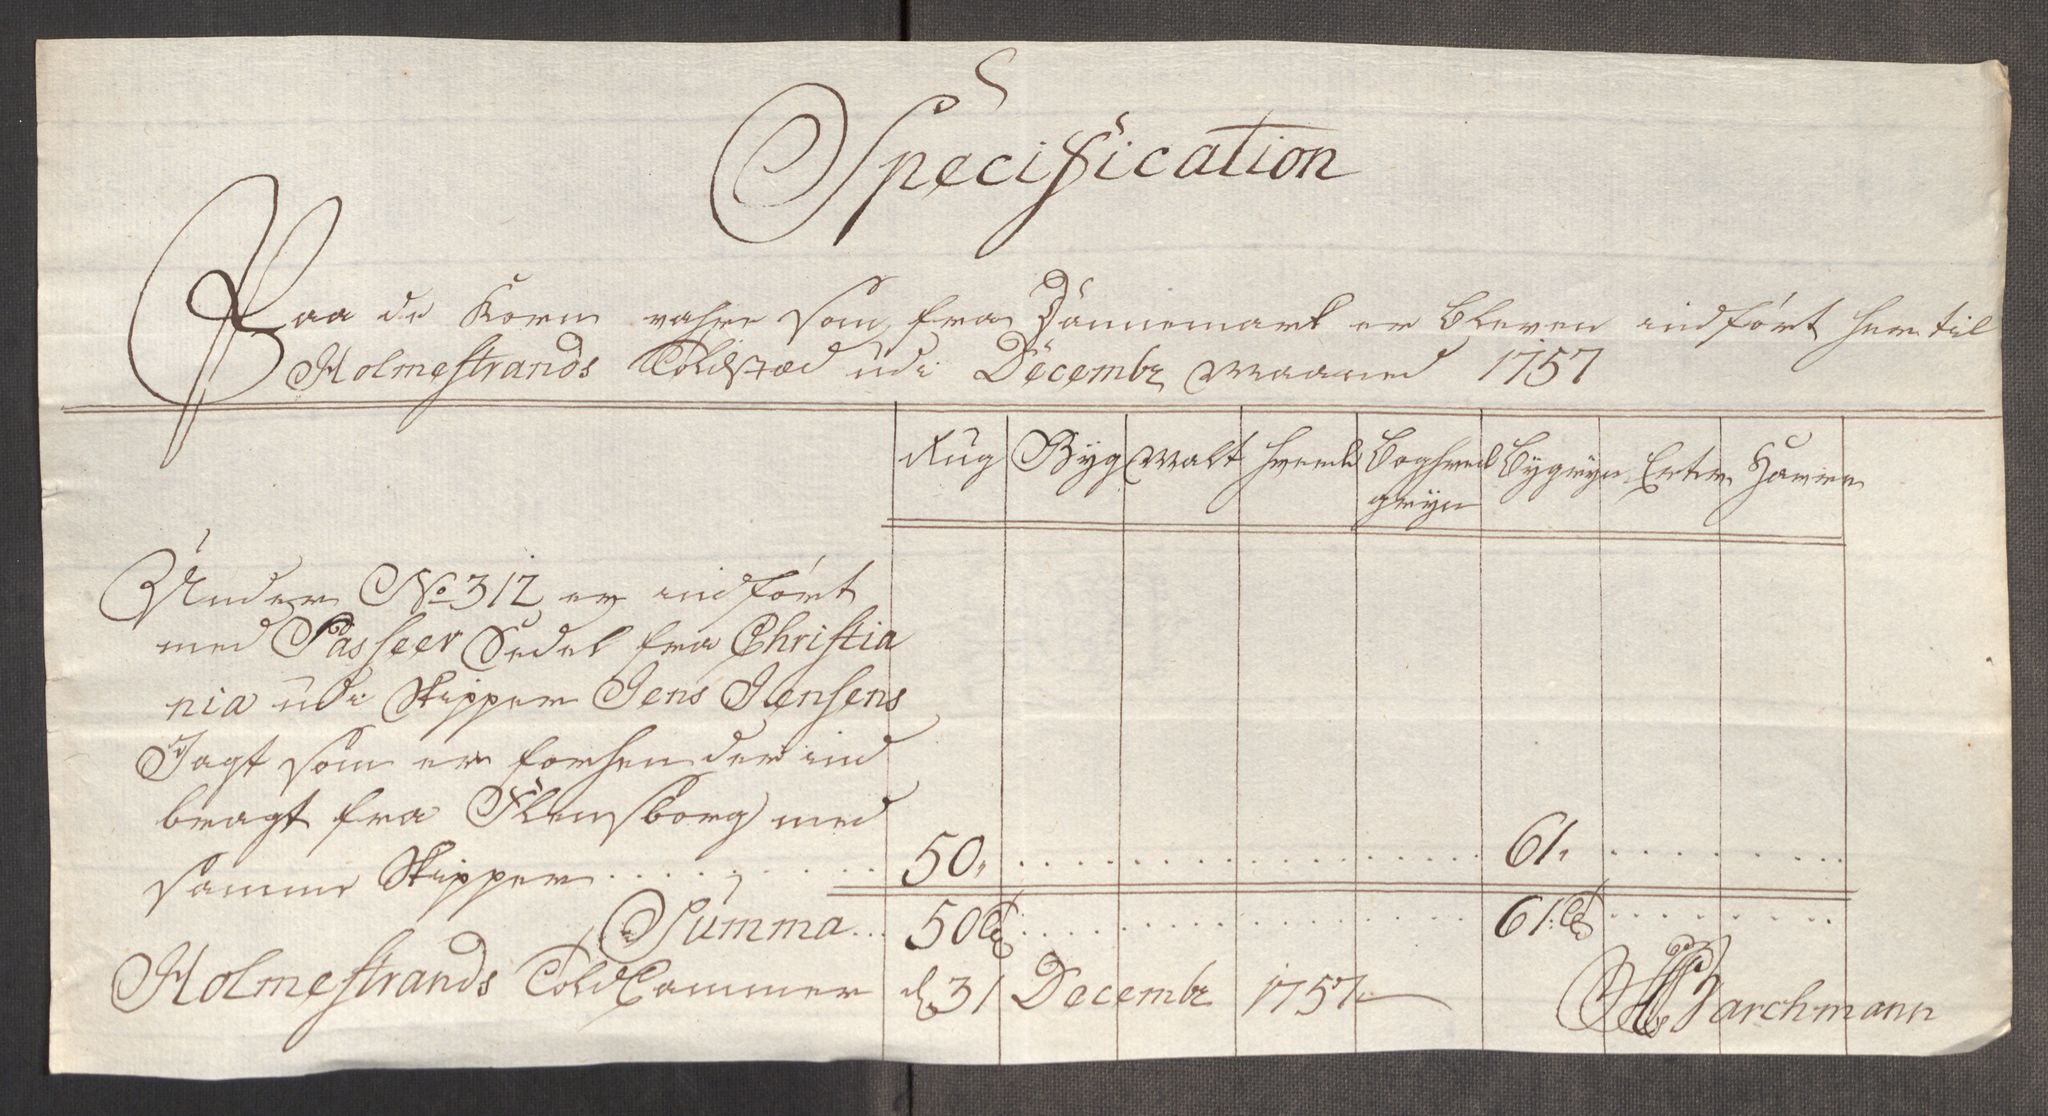 Specification
Paa de Korn vahre som fra Dännemark er bleven indført her til
Holmestrands Toldstæd udi Decembr Maaned 1757
Rug Byg Malt Hvede Boghvede Bygryn Erter Havre
gryn
Under No 312 er indført
med Passeer Sedel fra Christia
nia udi Skipper Jens Jensens
Jagt som er forhen der ind
bragt fra Flensborg med
samme Skipper . . . . . . . 50, . . . . . . . 61, . . . . .
Summa... 50 . . . . . . . 61 . . . . .
Holmestrands ToldCammer d 31 Decembr 1757 Parchmann